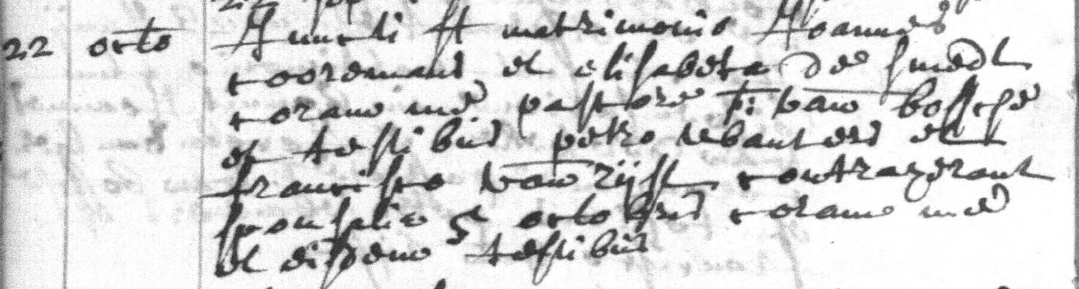 22 octo Juncti st matrimonio Joannes
cooremans et elisabeta de smedt
coram me pastore p: van bossche
et testibus petro wbauters et
francisco van rijst contraxerant
sponsalia 5 octobris coram me
et eisdem testibus